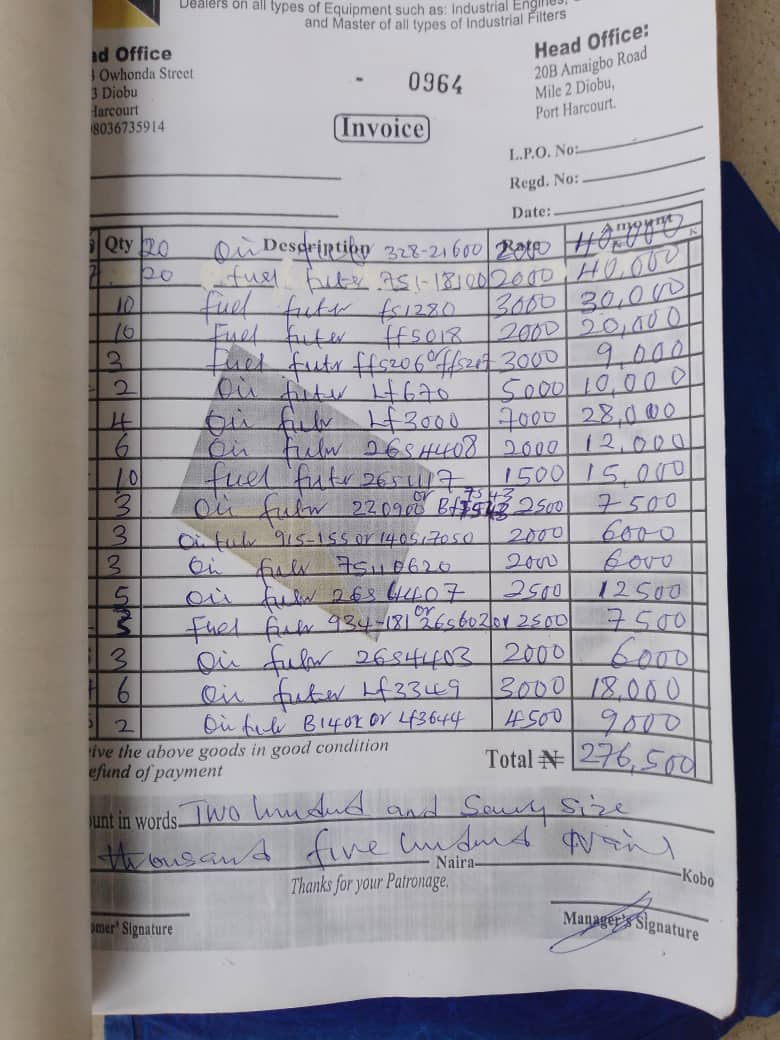 Dealers on all types of Equipment such as: Industrial Engines,
and Master of all types of Industrial Filters
ad Office
Owhonda Street
3 Diobu
Harcourt
8036735914
- 0964
Invoice
Head Office:
20B Amaigbo Road
Mile 2 Diobu,
Port Harcourt.
L.P.O. No:
Regd. No:
Date:
Qty Description Rate Amount
20 Oil 328-21600 2000 40,000
20 fuel 751-18100 2000 40,000
10 fuel fs1280 3000 30,000
10 Fuel ff5018 2000 20,000
3 Fuel ff5206 or ff5207 3000 9,000
2 Oil Lf670 5000 10,000
4 Oil Lf3000 7000 28,000
6 Oil 2654408 2000 12,000
10 fuel 2651117 1500 15,000
3 Oil 220900 or 7543 2500 7500
3 Oil 915-155 or 140517050 2000 6000
3 Oil 75110620 2000 6000
5 Oil 2654407 2500 12500
3 Fuel 934-181 or 265602 or 2500 7500
3 Oil 2654403 2000 6000
6 Oil Lf3349 3000 18,000
2 Oil B1402 or Lf3644 4500 9000
ive the above goods in good condition
efund of payment
Total ₦ 276,500
unt in words Two hundred and Seventy Six
thousand five hundred Naira
Naira
Kobo
Thanks for your Patronage.
omer' Signature
Manager's Signature